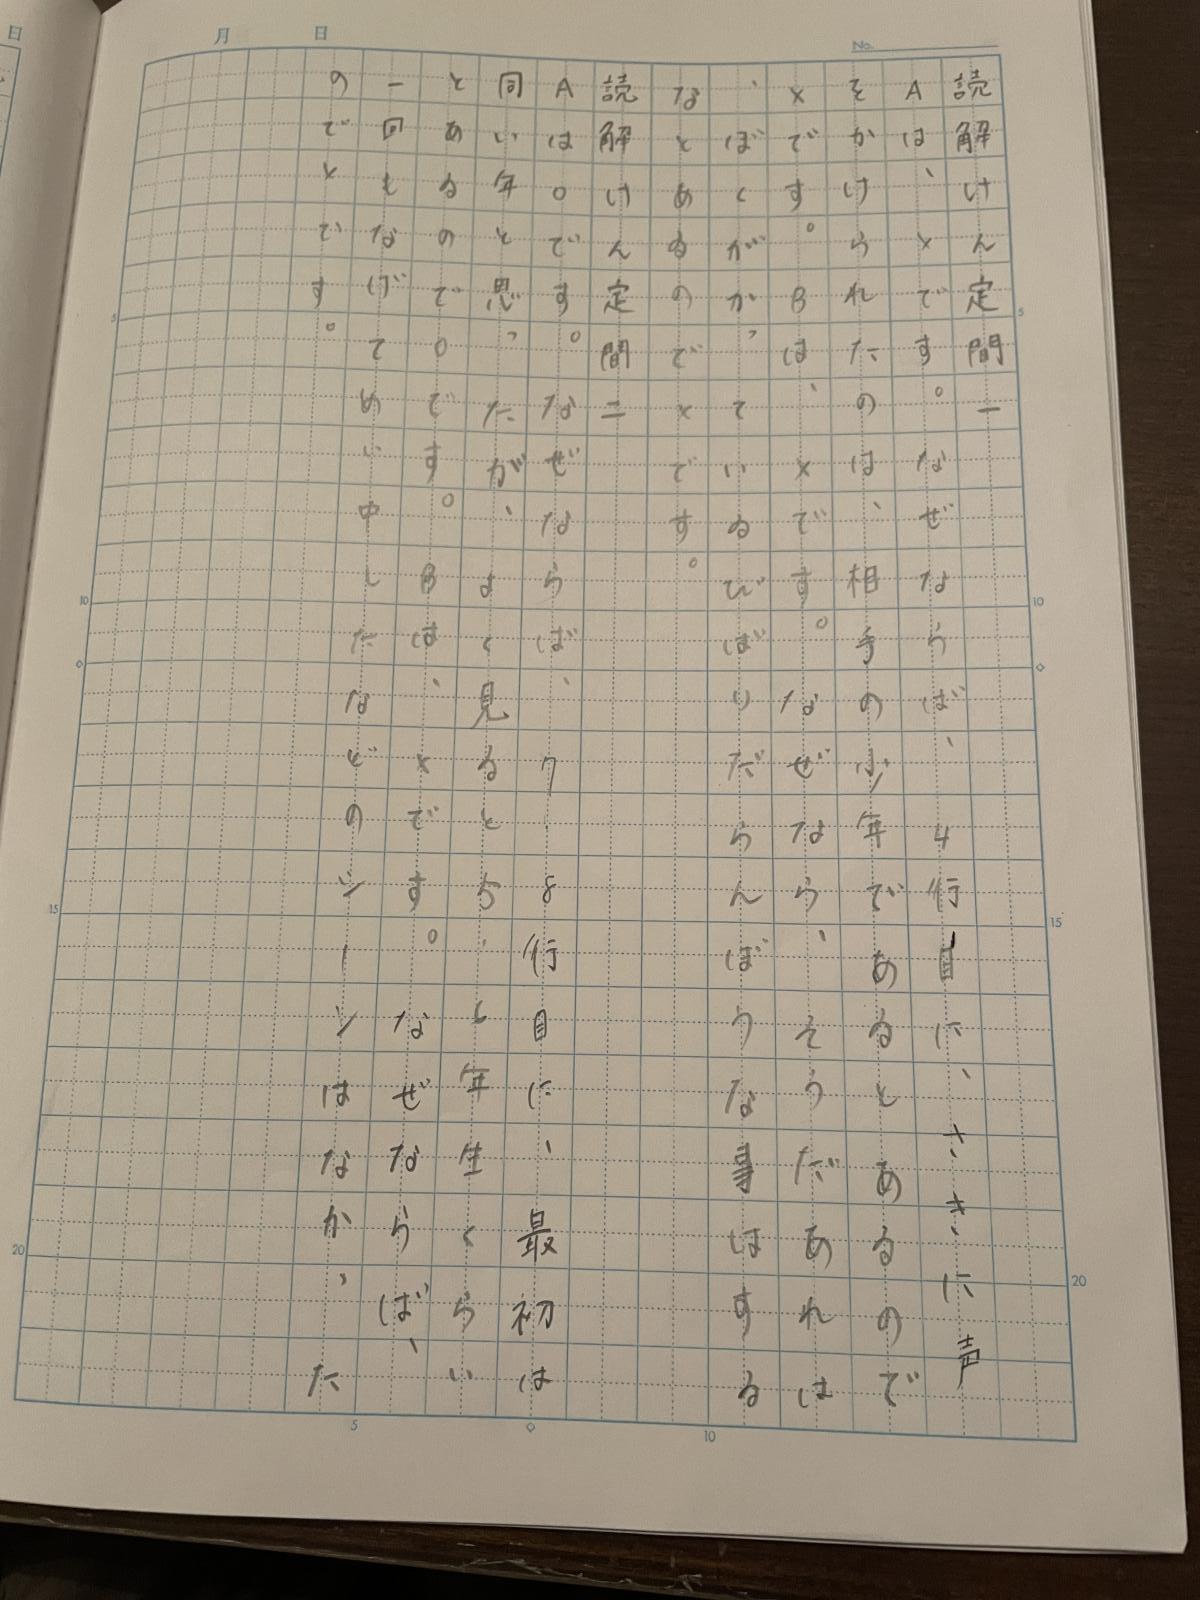 月 日 No.
読解けん定問一
Aは、×です。なぜならば、4行目に、ささきに声
をかけられたのは、相手の少年であるとあるので
×です。Bは、×です。なぜなら、、そうだあれは
、ぼくが、がかっているびばりだらんぼうな事はする
なとめるので、×です。
読解けん定問二
Aは○です。なぜならば、7.8行目に、最初は
同い年と思、たが、よく見ると5.6年生くらい
とあるので○です。Bは、×です。なぜならば、
一回もなげてめい中したなどのシーンはなか、た
ので×です。
5
10
15
20
5
10
15
20
5
10
日